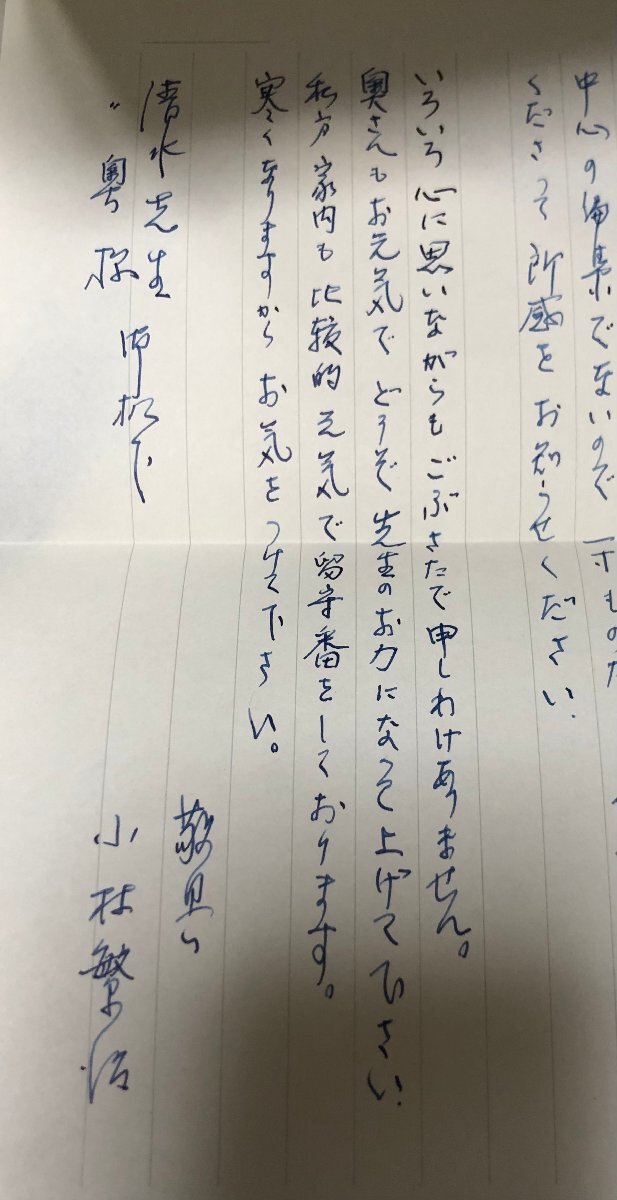 中心の編集でないので一寸もの
くださって所感をお知らせください.
いろいろ心に思いながらもごぶさたで申しわけありません。
奥さんもお元気でどうぞ先生のお力になって上げて下さい.
私方家内も比較的元気で留守番をしております。
寒くなりますからお気をつけて下さい。
敬具
小林繁治
清水先生
〃奥様 御机下